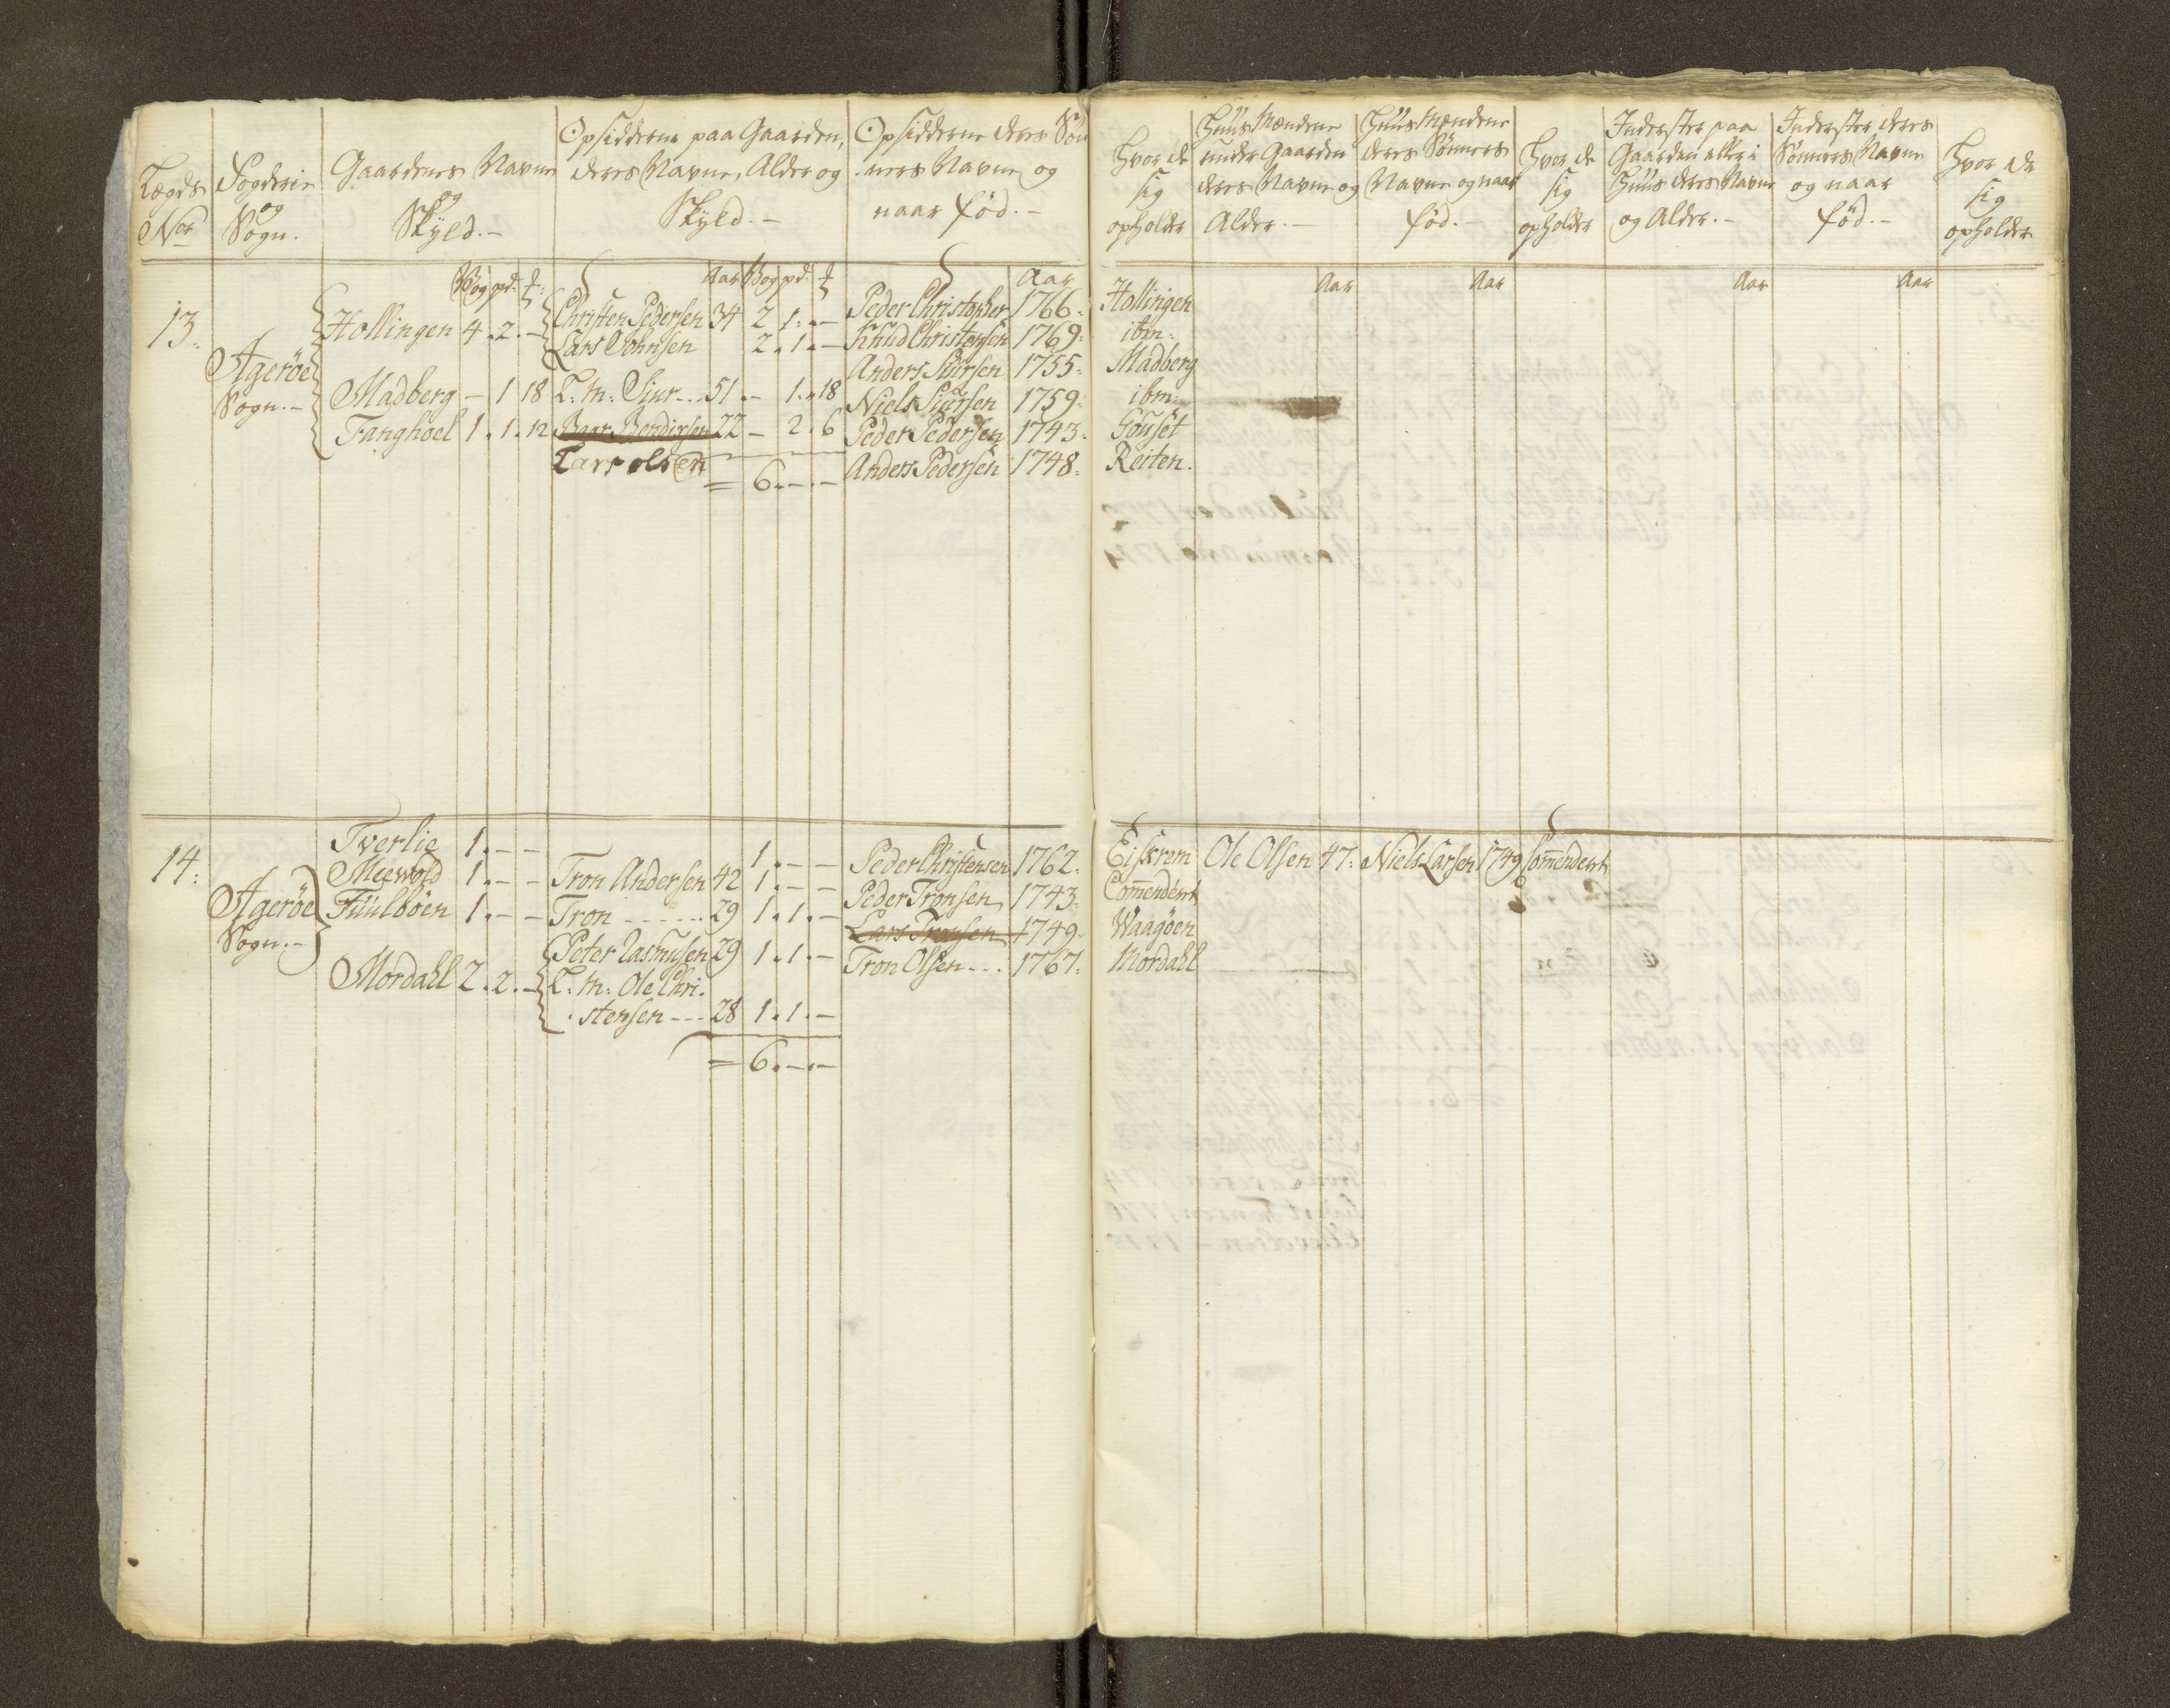 Lægds Nor
Fogderie og Sogn.
Gaardenes Navne og Skÿld.-
Opsidderne paa Gaarden, deres Navne, Alder og Skÿld.-
Opsidderne deres Søn-ners Navne og naar fød.-
Hvor de sig opholder
HuusMændene under Gaarden deres Navne og Alder.-
HuusMændene deres Sønners Navne og naar fød.-
Hvor de sig opholder
Inderster paa Gaarden eller i Huus deres Navne og Alder.-
Inderster deres Sønners Navne og naar fød.-
Hvor de sig opholder
Vog pd: Aar Vog pd: Aar Aar Aar Aar Aar
13. Hollingen 4.2.- Christen Pedersen 34 2.1.- Peder Christopher 1766. Hollingen
Lars Johnsen 2.1.- Knud Christensen 1769. ibm:
Agerøe Sogn.-
Anders Siursen 1755. Madberg
Madberg - 1 18 L: M: Siur... 51.- 1.18 Niels Siursen 1759. ibm:
Fanghoel 1.1.12 Baar Bendixsen 22 - 2.6 Peder Pedersen 1743. Gouset
Lars olsen = 6.-.- Anders Pedersen 1748. Reiten.
14: Tverlie 1.-- 1.-- Peder Christensen 1762. Eiskrem Ole Olsen 47: Niels Larsen 1749 Comendent
Meevold 1.-- Tron Andersen 42 1.-- Peder Tronsen 1743. Comendent
Agerøe Sogn.-
Fuulbøen 1.-- Tron ...... 29 1.1.- Lars Tronsen 1749. Waagøen
Mordahl 2.2.- Peter Rasmusen 29 1.1.- Tron Olsen... 1767. Mordahl
L: M: Ole Chri-
stensen --- 28 1.1.-
= 6.-.-